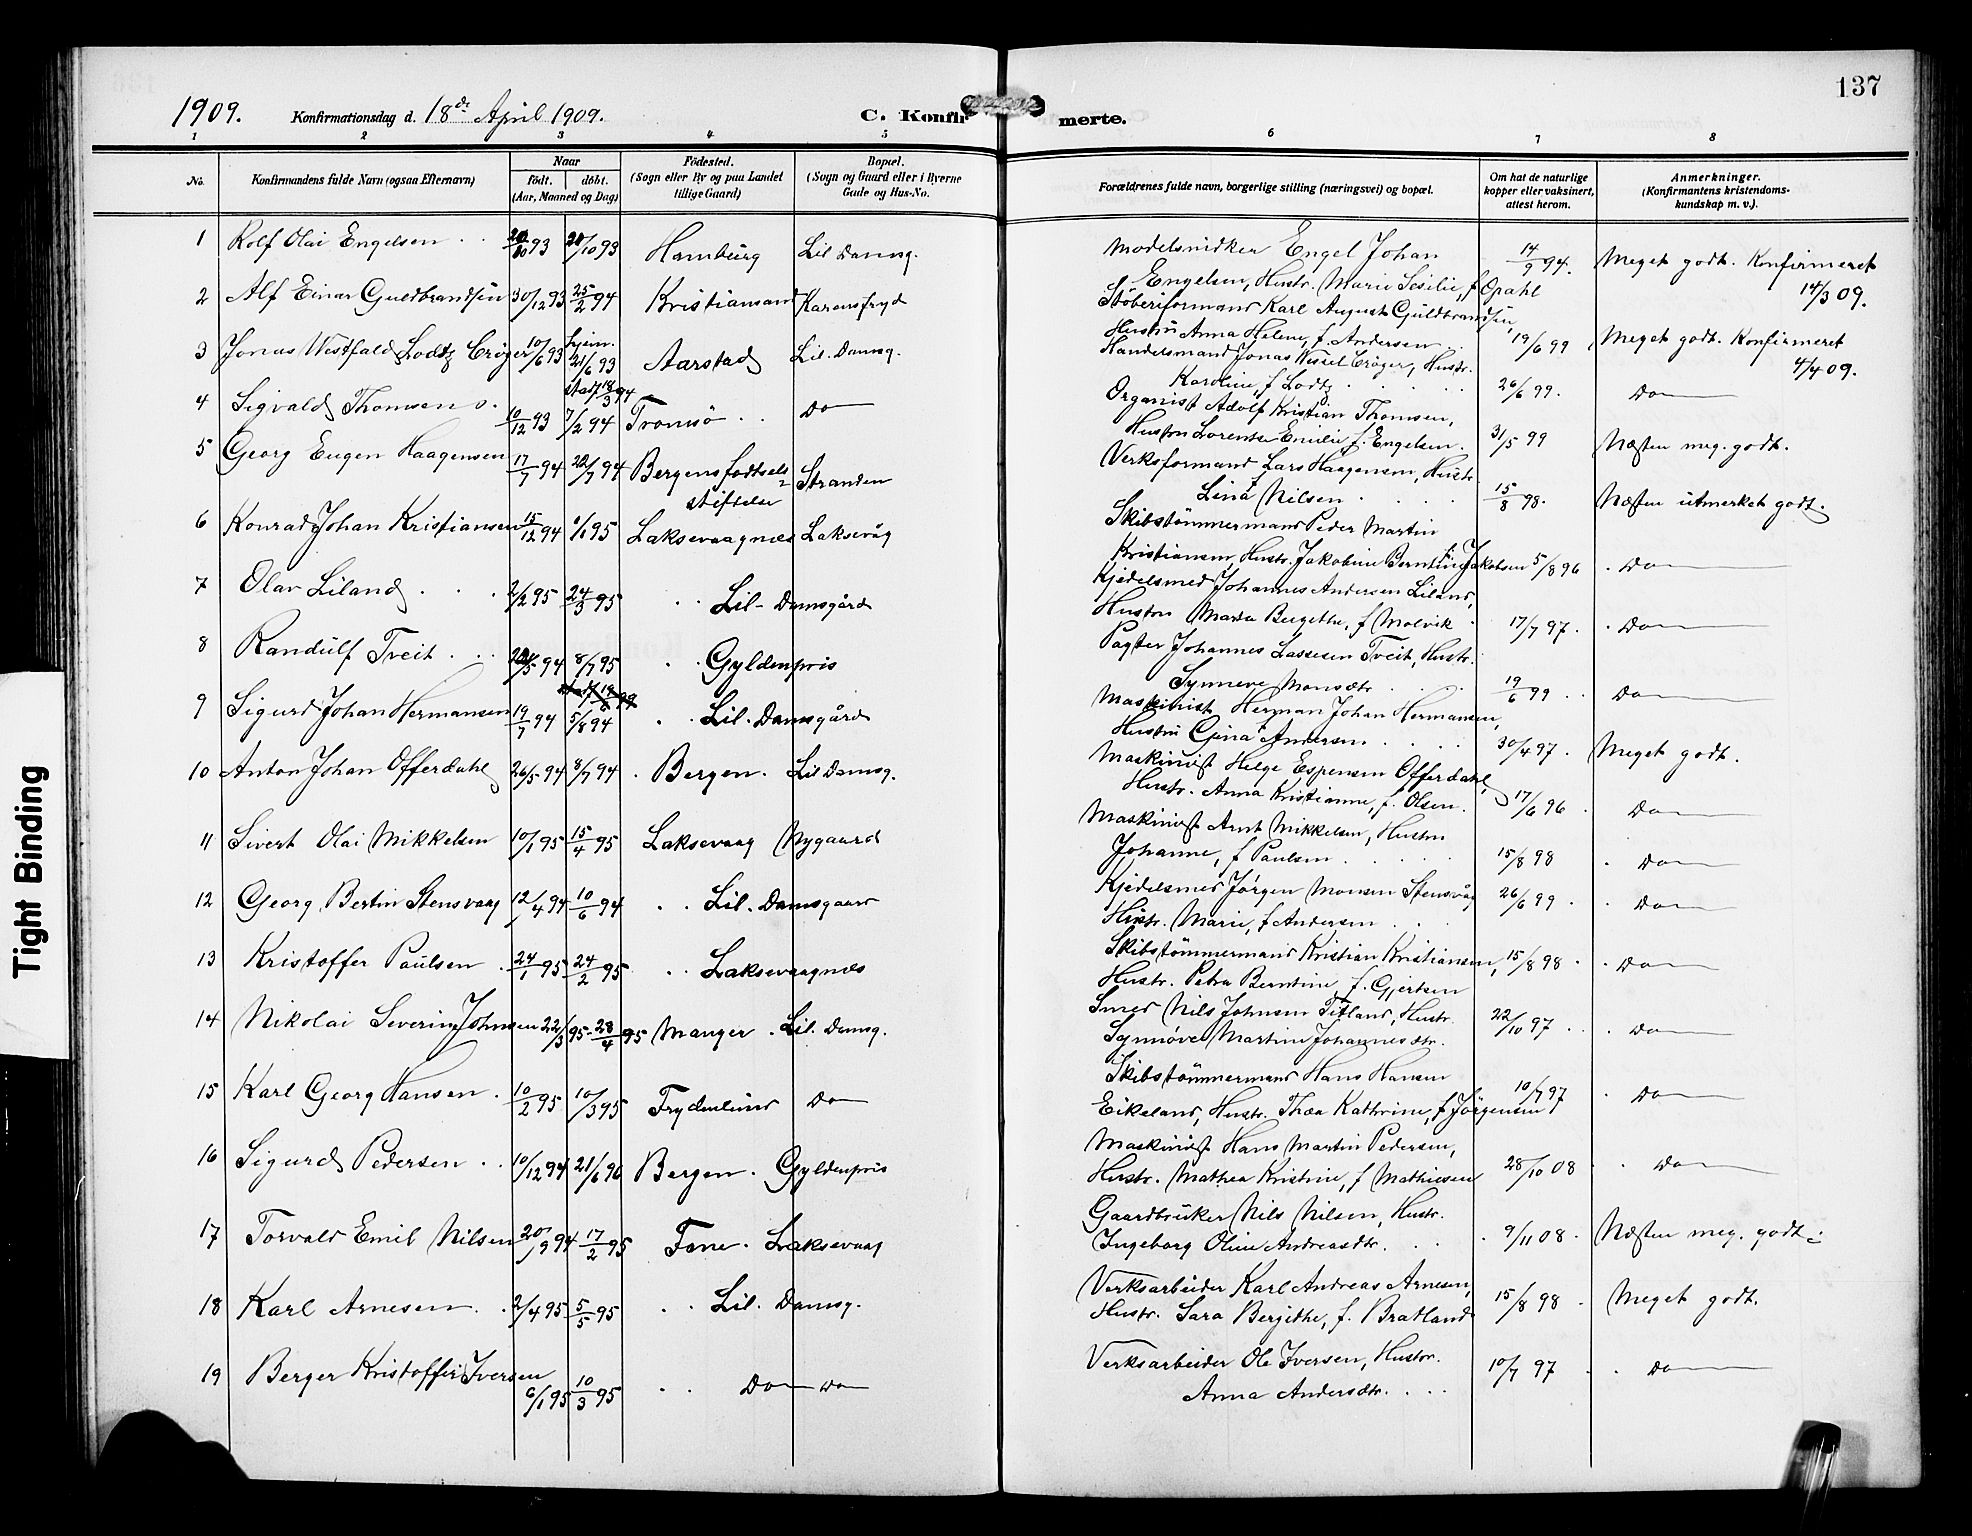 137
1909. Konfirmationsdag d. 18de April 1909. C. Konfirmerte.
1 2 3 4 5 6 7 8
No. Konfirmandens fulde Navn (ogsaa Efternavn) Naar født. døbt. (Aar, Maaned og Dag) Fødested. (Sogn eller By og paa Landet tillige Gaard) Bopæl. (Sogn og Gaard eller i Byerne Gade og Hus-No. Forældrenes fulde navn, borgerlige stilling (næringsvei) og bopæl. Om hat de naturlige kopper eller vaksinert, attest herom. Anmerkninger. (Konfirmantens kristendomskundskap m. v.).
1 Rolf Olai Engelsen 93 /10 93 Hamburg Lil Damsg. Modelsnidker Engel Johan 14/9 94. Meget godt. Konfirmeret
Engelsen, Hustr. Marie Sesilie, f Opahl 14/3 09.
2 Alf Einar Guldbrandsen 30/12 93 25/2 94 Kristiansand Karensfryd Støberiformand Karl August Guldbrandsen,
Hustru Anna Helene, f. Andersen 19/6 99 Meget godt. Konfirmeret
3 Jonas Westfald Lodtz Crøger 10/6 93 hjem. 21/6 93 stadf 18/3 94 Aarstad Lil. Damsg. Handelsmand Jonas Wessel Crøger, Hustr. 4/4 09.
Karoline, f Lodtz 26/6 99. Do
4 Sigvald Thomsen 10/12 93 7/2 94 Tromsø Do Organist Adolf Kristian Thomsen,
Hustru Lorentse Emilie f. Engelsen. 31/5 99 Næsten meg. godt.
5 Georg Eugen Haagensen 17/7 94 22/7 94 Bergens fødselsstiftelse Stranden Verksformand Lars Haagensen, Hustr.
Lina Nilsen 15/8 98. Næsten utmerket godt.
6 Konrad Johan Kristiansen 15/12 94 1/1 95 Laksevaagnes Laksevåg Skibstømmermand Peder Martin
Kristiansen, Hustr. Jakobine Berntine f. Jakobsen 5/8 96 Do
7 Olav Liland 2/2 95 24/3 95 Lil- Damsgård Kjedelsmed Johannes Andersen Liland,
Hustru Marta Bergithe, f Molvik 17/7 97. Do
8 Randulf Tveit /5 94 8/7 95 Gyldenpris Pagter Johannes Lassesen Tveit, Hustr.
Synneve Monsdtr. 19/6 99 Do
9 Sigurd Johan Hermansen 19/7 94 5/8 94 Lil. Damsgård Maskinist Herman Johan Hermansen,
Hustru Gina Andersen. 30/4 97. Meget godt.
10 Anton Johan Offerdahl 26/5 94 8/7 94 Bergen. Lil Damsg. Maskinist Helge Espensen Offerdahl,
Hustr. Anna Kristianne, f. Olsen. 17/6 96 Do
11 Sivert Olai Mikkelsen 10/1 95 15/4 95 Laksevaag Nygaard Maskinist Arnt Mikkelsen, Hustru
Johanne, f Paulsen 15/8 98 Do
12 Georg Bertin Stensvaag 12/4 94 10/6 94 Lil. Damsgaard Kjedelsmed Jørgen Monsen Stensvåg 26/6 99 Do
Hustr. Marie, f Andersen
13 Kristoffer Paulsen 24/1 95 24/2 95 Laksevaagnes Skibstømmermand Kristian Kristiansen, 15/8 98 Do
Hustr. Petra Berntine, f. Gjertsen
14 Nikolai Severin Johnsen 22/3 95 28/4 95 Manger Lil. Damsg. Smed Nils Johnsen Titland, Hustr. 22/10 97 Do
Synnøve Martine Johannesdtr.
15 Karl Georg Hansen 10/2 95 10/3 95 Frydenlund Do Skibstømmermand Hans Hansen 10/7 97 Do
Eikeland, Hustr. Thea Kathrine, f Jørgensen
16 Sigurd Pedersen 10/12 94 21/6 96 Bergen. Gyldenpris Maskinist Hans Martin Pedersen,
Hustr. Mathea Kristine, f Mathiesen 28/10 08 Do
17 Torvald Emil Nilsen 20/9 94 17/2 95 Fane. Laksevaag Gaardbruker Nils Nilsen, Hustr.
Ingeborg Oline Andreasdtr. 9/11 08. Næsten meg. godt.
18 Karl Arnesen 2/4 95 5/5 95 Lil. Damsg. Verksarbeider Karl Andreas Arnesen, 15/8 98 Meget godt.
Hustr. Sara Bergithe, f. Bratland
19 Berger Kristoffer Iversen 6/1 95 10/3 95 Do Do Verksarbeider Ole Iversen, Hustr. 10/7 97 Do
Anna Andersdtr.
Tight Binding